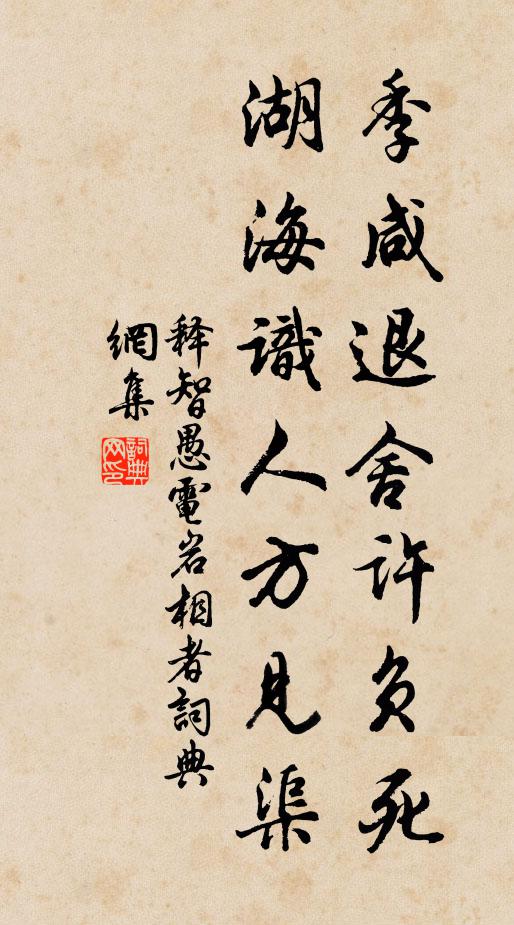 季咸退舍许负死
湖海識人方見渠
释智愚電岩相者詞典
網集
詞典
网印